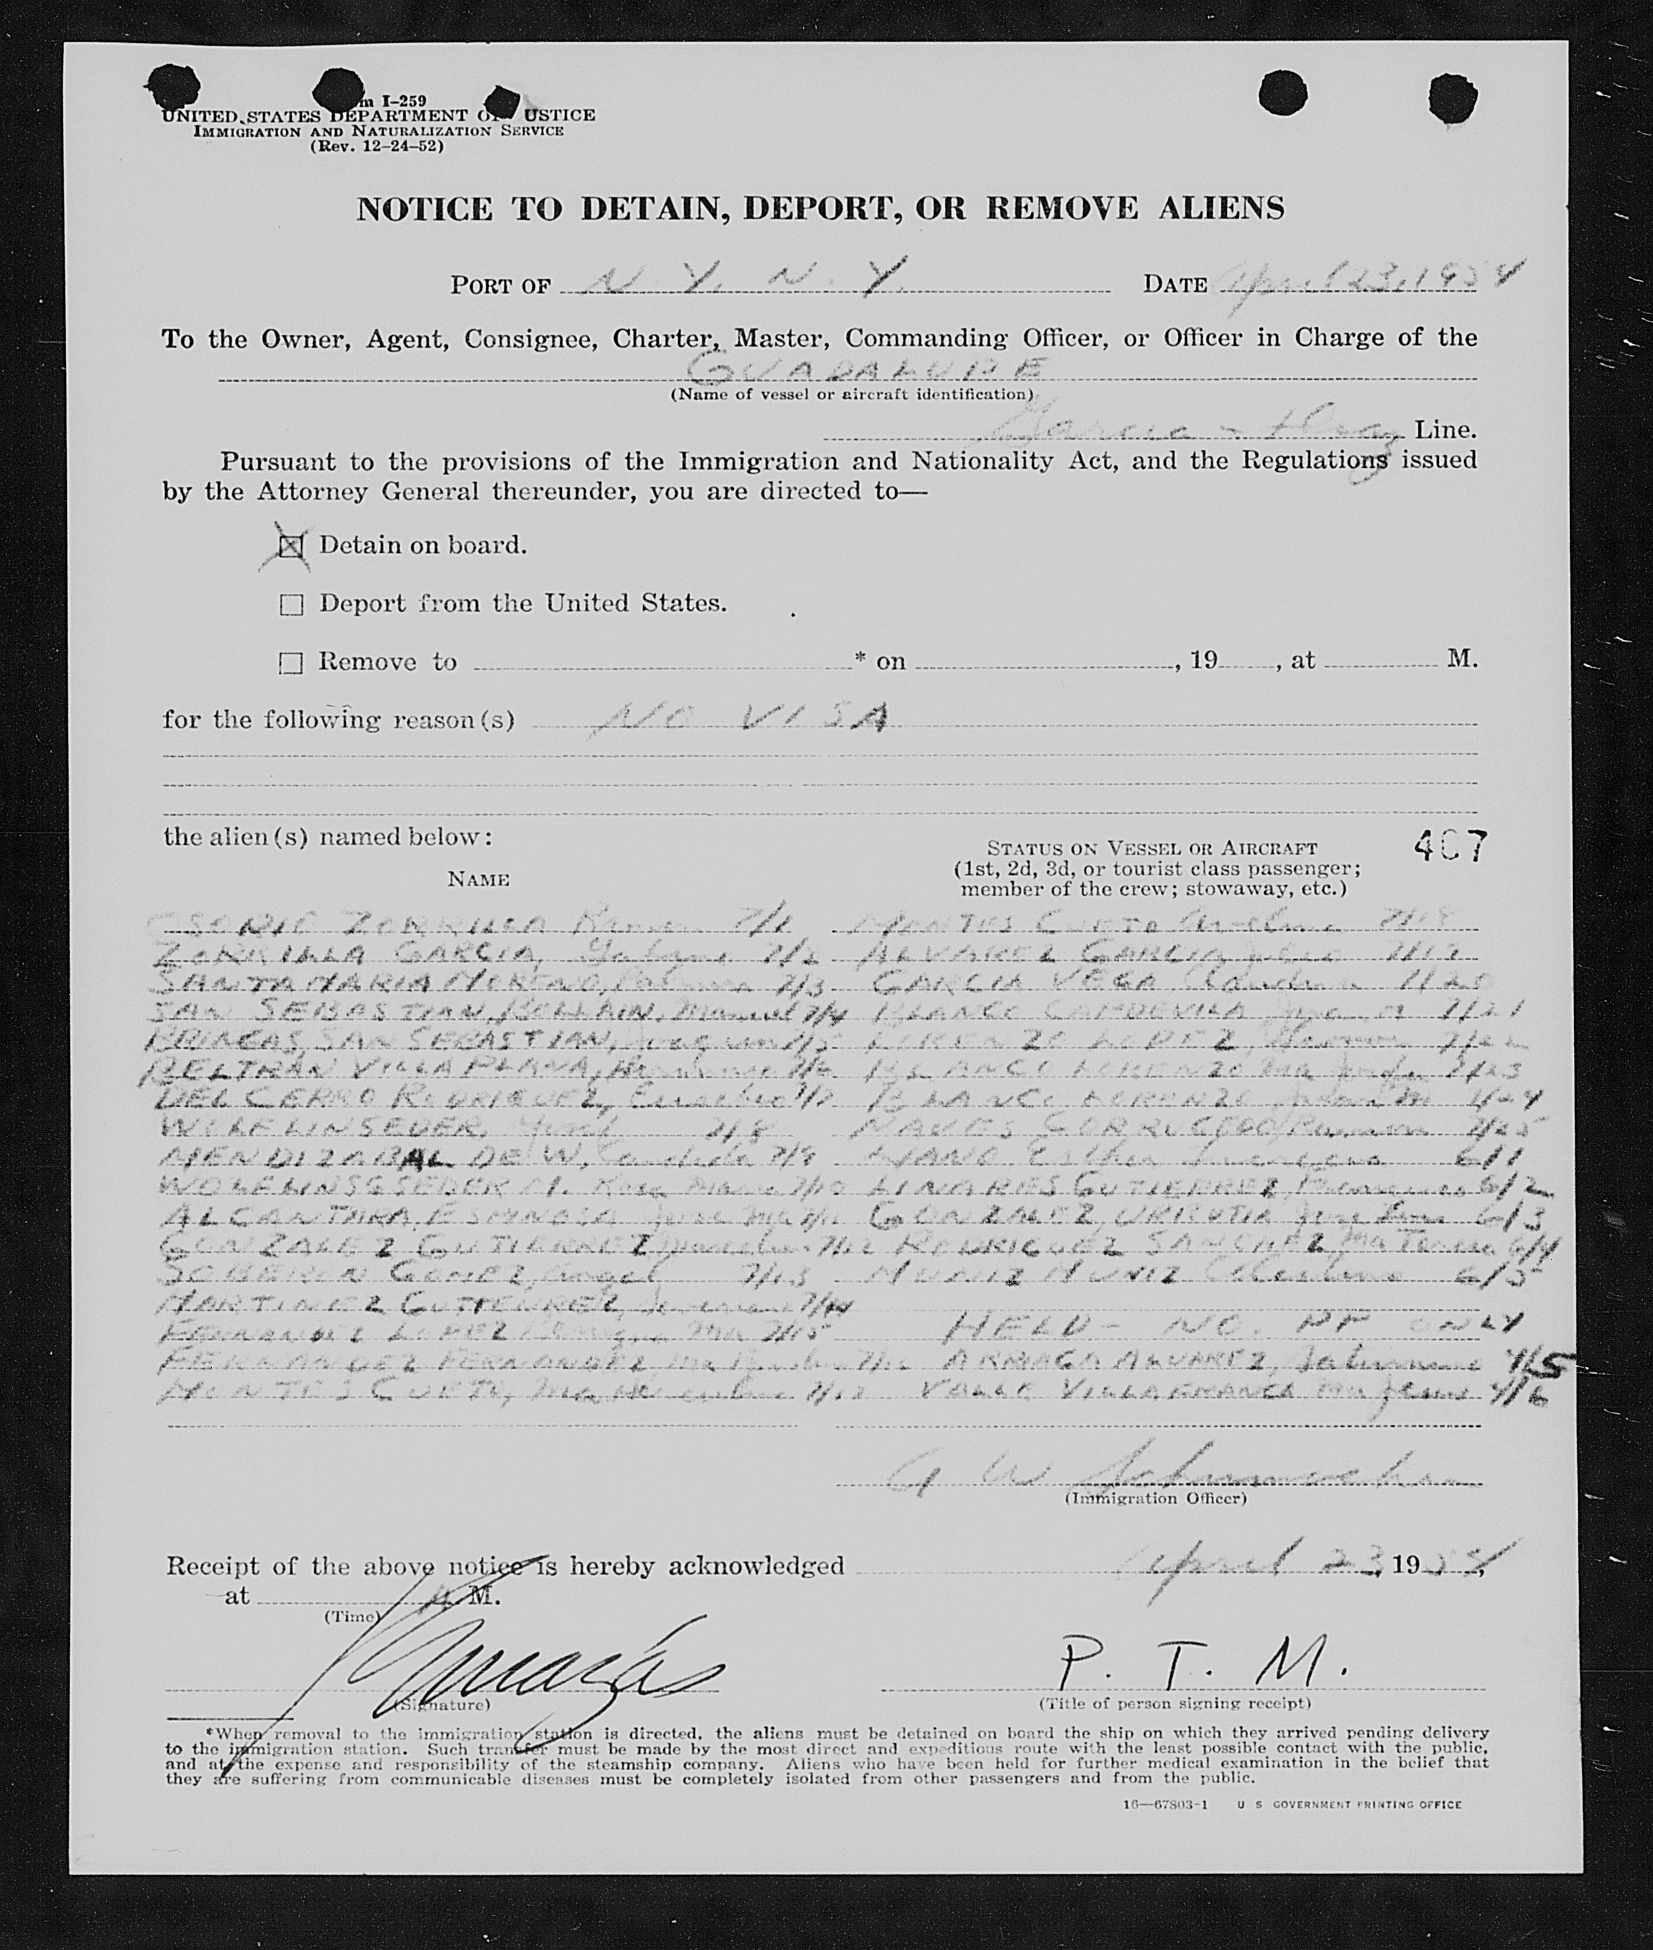 m I-259
UNITED STATES DEPARTMENT OF USTICE
IMMIGRATION AND NATURALIZATION SERVICE
(Rev. 12-24-52)
NOTICE TO DETAIN, DEPORT, OR REMOVE ALIENS
PORT OF N. Y. N. Y. DATE April 23, 1954
To the Owner, Agent, Consignee, Charter, Master, Commanding Officer, or Officer in Charge of the
GUADALUPE
(Name of vessel or aircraft identification)
Garcia - Diaz Line.
Pursuant to the provisions of the Immigration and Nationality Act, and the Regulations issued
by the Attorney General thereunder, you are directed to—
☒ Detain on board.
☐ Deport from the United States.
☐ Remove to * on , 19 , at M.
for the following reason(s) NO VISA
the alien(s) named below:
STATUS ON VESSEL OR AIRCRAFT 407
(1st, 2d, 3d, or tourist class passenger;
member of the crew; stowaway, etc.)
NAME
ZORRILLA 7/1 MONTES CUETO 7/18
ZORRILLA GARCIA, 7/2 ALVAREZ GARCIA 7/19
SANTAMARIA MORENO, 7/3 GARCIA VEGA 7/20
SAN SEBASTIAN, Manuel 7/4 BLANCO 7/21
SAN SEBASTIAN, Joaquin 7/5 LORENZO LOPEZ, 7/22
BELTRAN VILLAPLANA, 7/6 BLANCO LORENZO 7/23
DEL CERRO RODRIGUEZ, Eusebio 7/7 BLANCO LORENZO
7/8 NAVES Ramon
MENDIZABAL DE W, Candida 7/9 Esther 6/1
Rosa Maria 7/10 LINARES GUTIERREZ, Francisco 6/2
ALCANTARA, ESPINOSA 7/11 GONZALEZ, URRUTIA 6/3
GONZALEZ GUTIERREZ, 7/12 RODRIGUEZ SANCHEZ, Ma Teresa 6/4
SOBERON GOMEZ, Angel 7/13 MUNIZ MUNIZ Celestino 6/5
MARTINEZ GUTIERREZ, 7/14
FERNANDEZ LOPEZ 7/15 HELD - NO. PF ONLY
FERNANDEZ FERNANDEZ ALVAREZ, 4/15
MONTES CUETO, 7/17 VALLE VILLAFRANCA 4/16
G W Schumacher
(Immigration Officer)
Receipt of the above notice is hereby acknowledged April 23, 1954,
at A M.
(Time)
P. T. M.
(Signature) (Title of person signing receipt)
*When removal to the immigration station is directed, the aliens must be detained on board the ship on which they arrived pending delivery
to the immigration station. Such transfer must be made by the most direct and expeditious route with the least possible contact with the public,
and at the expense and responsibility of the steamship company. Aliens who have been held for further medical examination in the belief that
they are suffering from communicable diseases must be completely isolated from other passengers and from the public.
16—67803-1 U S GOVERNMENT PRINTING OFFICE